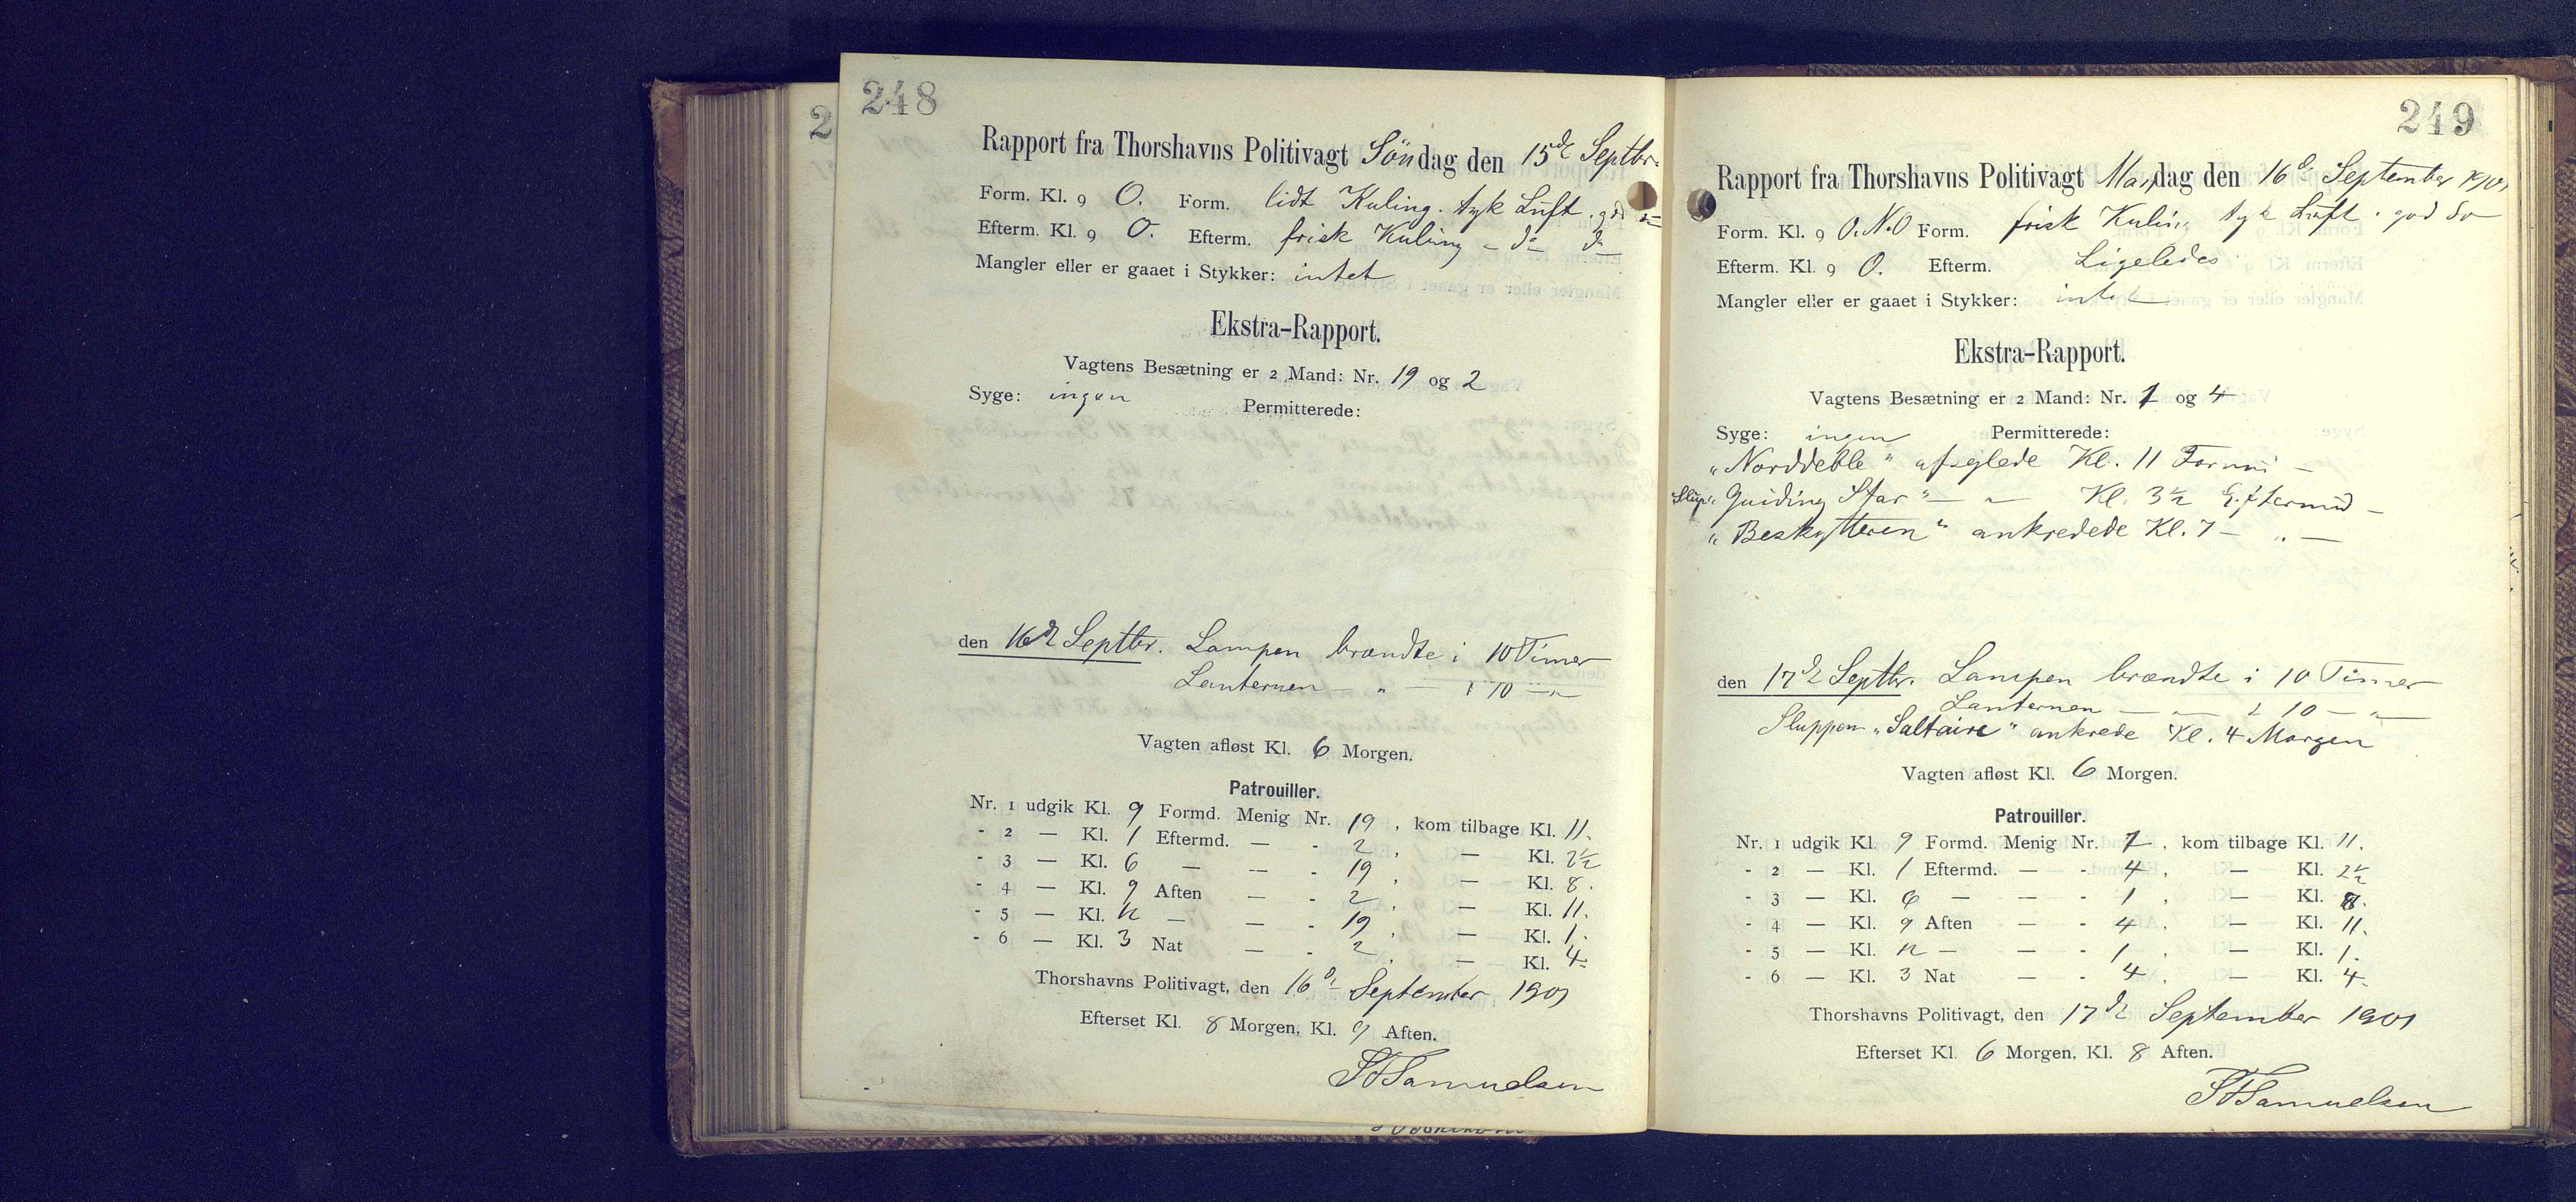 248
Rapport fra Thorshavns Politivagt Söndag den 15de Septbr.
Form. Kl. 9 O. Form. lidt Kuling. tyk Luft. god
Efterm. Kl. 9 O. Efterm. frisk Kuling - do do
Mangler eller er gaaet i Stykker: intet
Ekstra-Rapport.
Vagtens Besætning er 2 Mand: Nr. 19 og 2
Syge: ingen Permitterede:
den 16de Septbr. Lampen brændte i 10 Timer
Lanternen — " — i 10 — "
Vagten afløst Kl. 6 Morgen.
Patrouiller.
Nr. 1 udgik Kl. 9 Formd. Menig Nr. 19, kom tilbage Kl. 11.
- 2 — Kl. 1 Eftermd. — - 2, — Kl. 2½
- 3 — Kl. 6 — — - 19, — Kl. 8.
- 4 — Kl. 9 Aften — - 2, — Kl. 11.
- 5 — Kl. 12 — — - 19, — Kl. 1.
- 6 — Kl. 3 Nat — - 2, — Kl. 4.
Thorshavns Politivagt, den 16de September 1901
Efterset Kl. 8 Morgen, Kl. 9 Aften.
SFSamuelsen
249
Rapport fra Thorshavns Politivagt Mandag den 16de September 1901
Form. Kl. 9 O.N.O Form. frisk Kuling tyk Luft. god do
Efterm. Kl. 9 O. Efterm. Ligeledes
Mangler eller er gaaet i Stykker: intet
Ekstra-Rapport.
Vagtens Besætning er 2 Mand: Nr. 1 og 4
Syge: ingen Permitterede:
"Norddeble" afseglede Kl. 11 Formi —
Slup "Guiding Star" — " — Kl. 3½ Eftermid —
"Beskytteren" ankredede Kl. 7 — " —
den 17de Septbr. Lampen brændte i 10 Timer
Lanternen — " — i 10 — "
Sluppen "Saltaire" ankrede Kl. 4 Morgen
Vagten afløst Kl. 6 Morgen.
Patrouiller.
Nr. 1 udgik Kl. 9 Formd. Menig Nr. 1, kom tilbage Kl. 11.
- 2 — Kl. 1 Eftermd. — - 4, — Kl. 2½
- 3 — Kl. 6 — — - 1, — Kl. 8.
- 4 — Kl. 9 Aften — - 4, — Kl. 11.
- 5 — Kl. 12 — — - 1, — Kl. 1.
- 6 — Kl. 3 Nat — - 4, — Kl. 4.
Thorshavns Politivagt, den 17de September 1901
Efterset Kl. 6 Morgen, Kl. 8 Aften.
SFSamuelsen